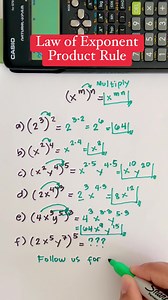 CASIO
Law of Exponent
Product Rule
Multiply
(xᵐ)ⁿ = xᵐⁿ
a) (2³)² = 2³·² = 2⁶ = 64
b) (x²)⁴ = x²·⁴ = x⁸
c) (x²y⁴)⁵ = x²·⁵ y⁴·⁵ = x¹⁰ y²⁰
d) (2x⁴)³ = 2³ x⁴·³ = 8x¹²
e) (4x³y⁵)³ = 4³ x³·³ y⁵·³
= 64x⁹y¹⁵
f) (2x⁵y⁷)⁵ = ???
Follow us for